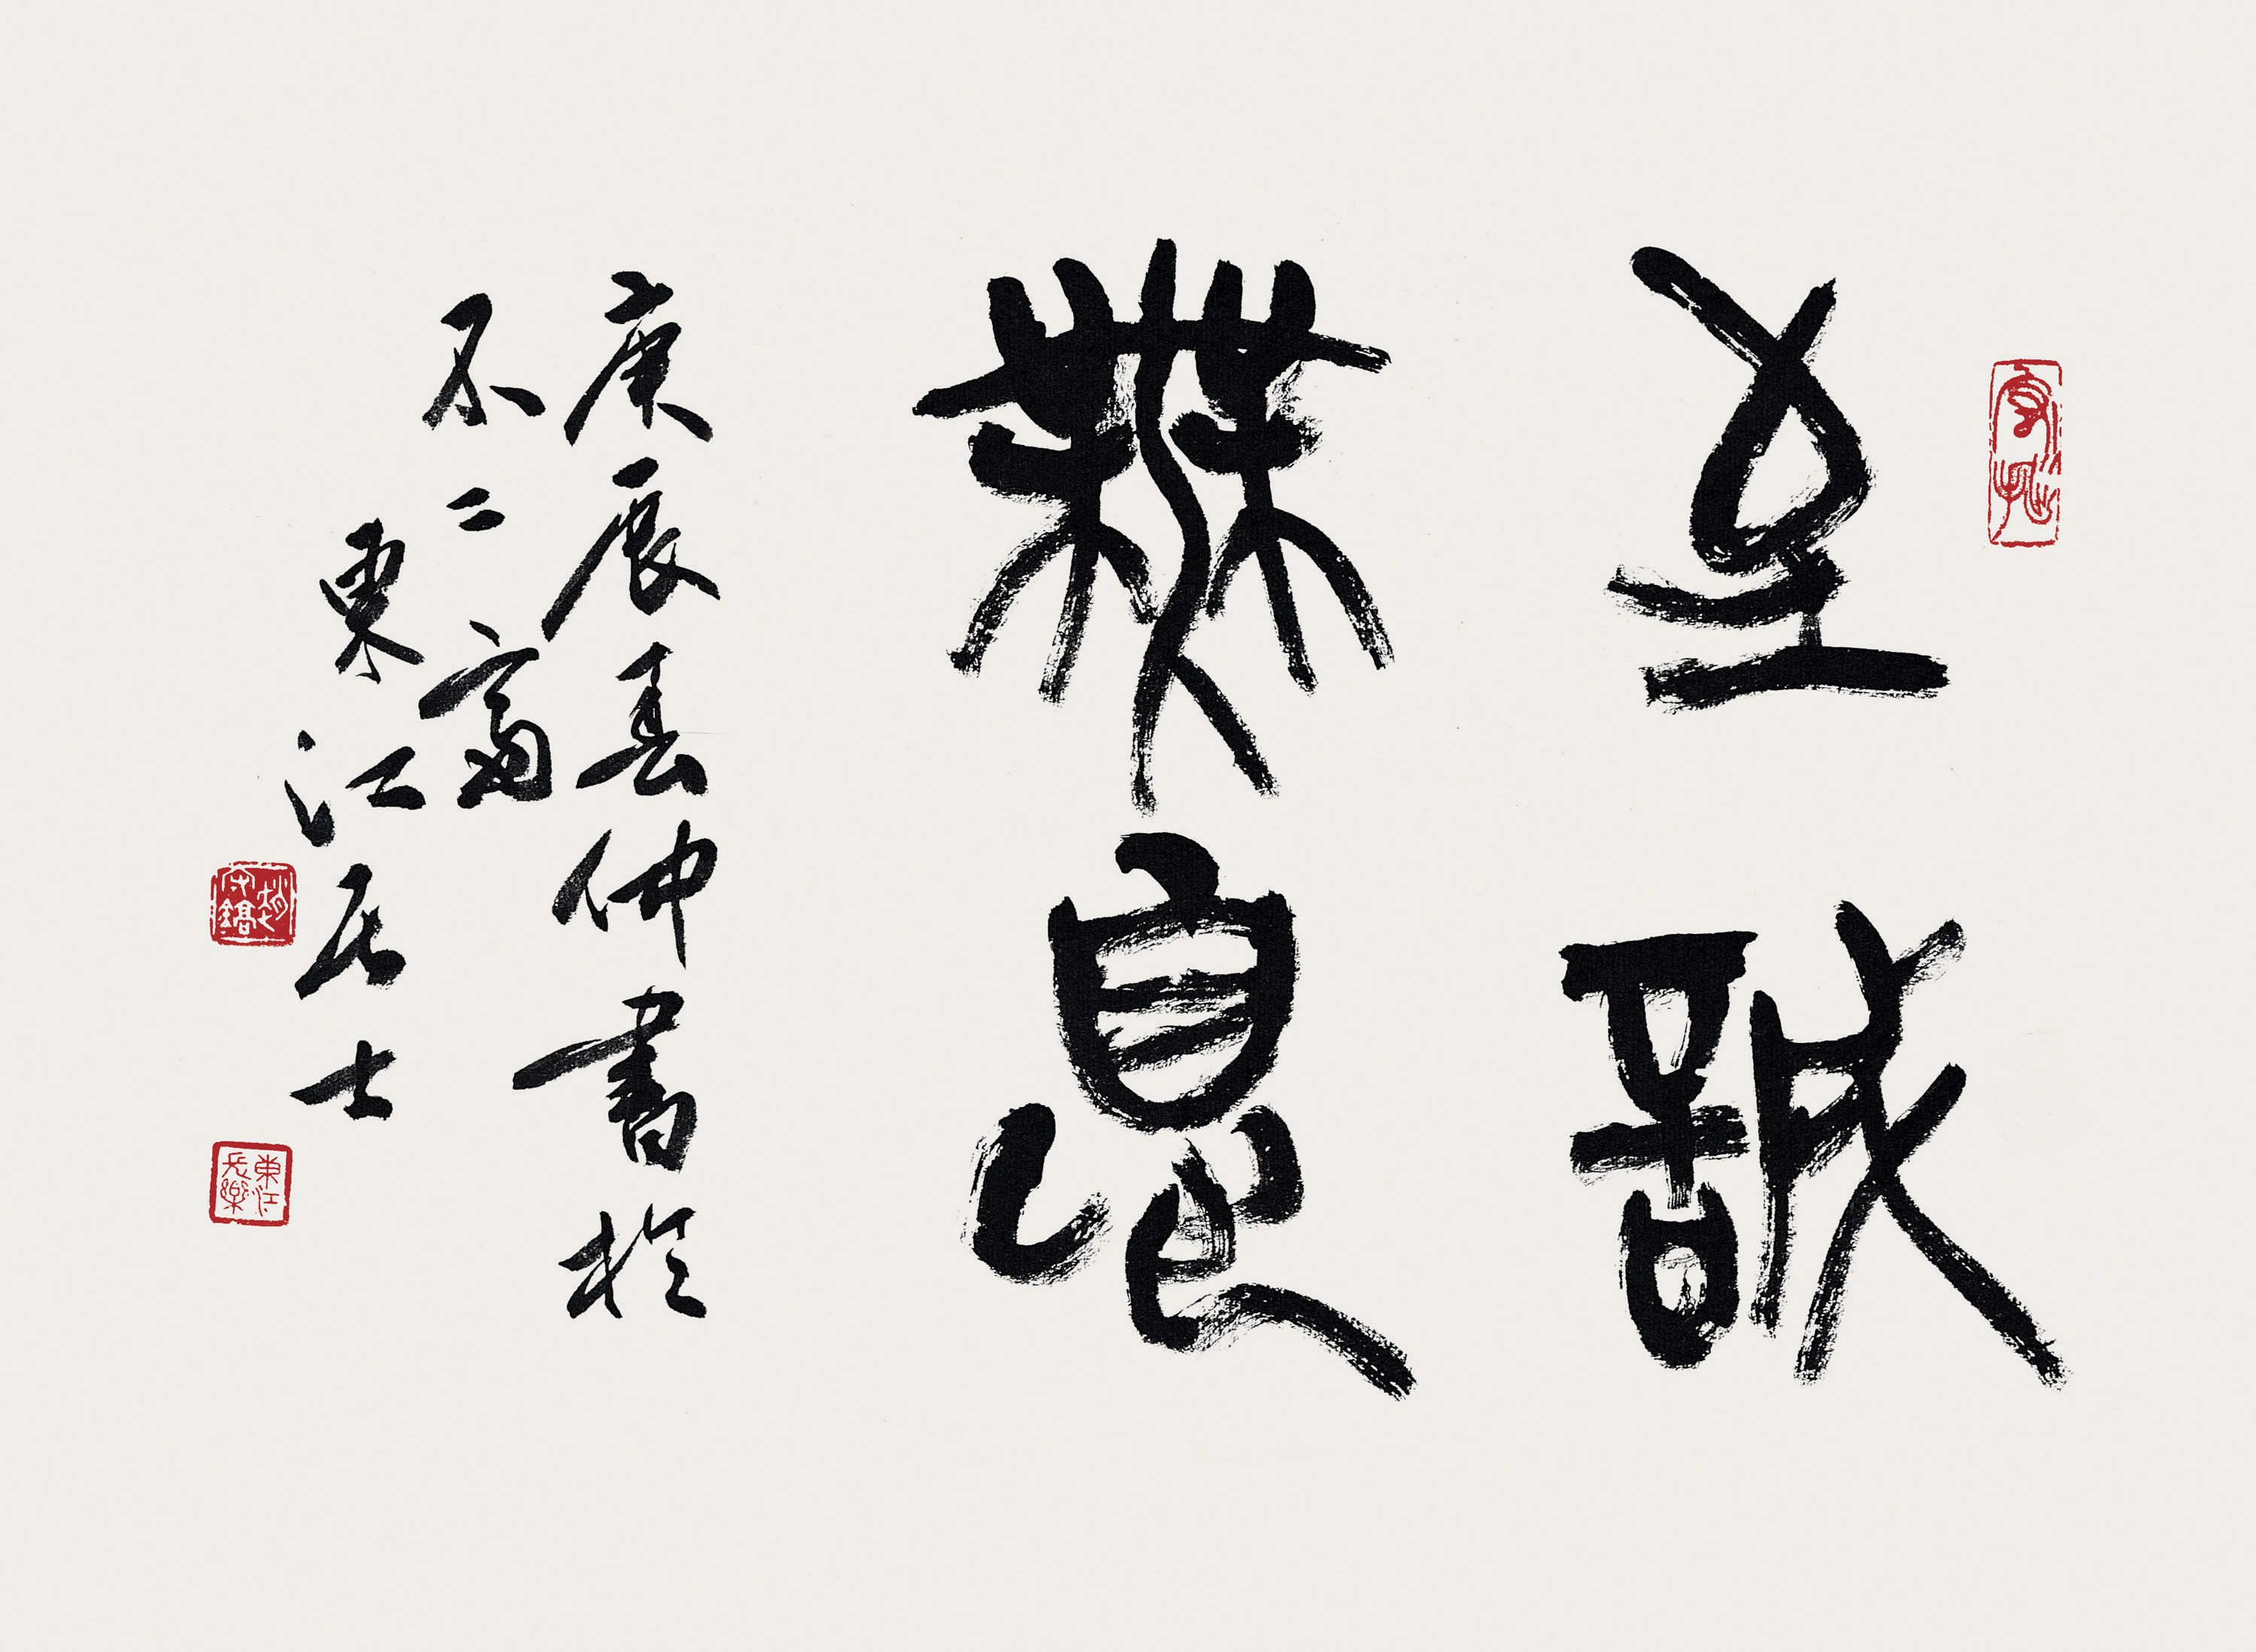 至誠
無息
庚辰春仲書於
不二齋
東江居士
守拙
東江
長樂